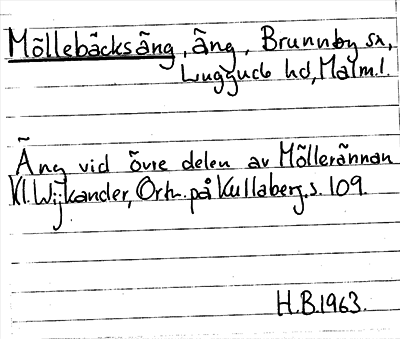 Möllebäcksäng, äng, Brunnby sn,
Luggude hd, Malm.l.
Äng vid övre delen av Möllerännan
Kl. Wijkander, Ortn. på Kullaberg. s. 109.
H.B.1963.